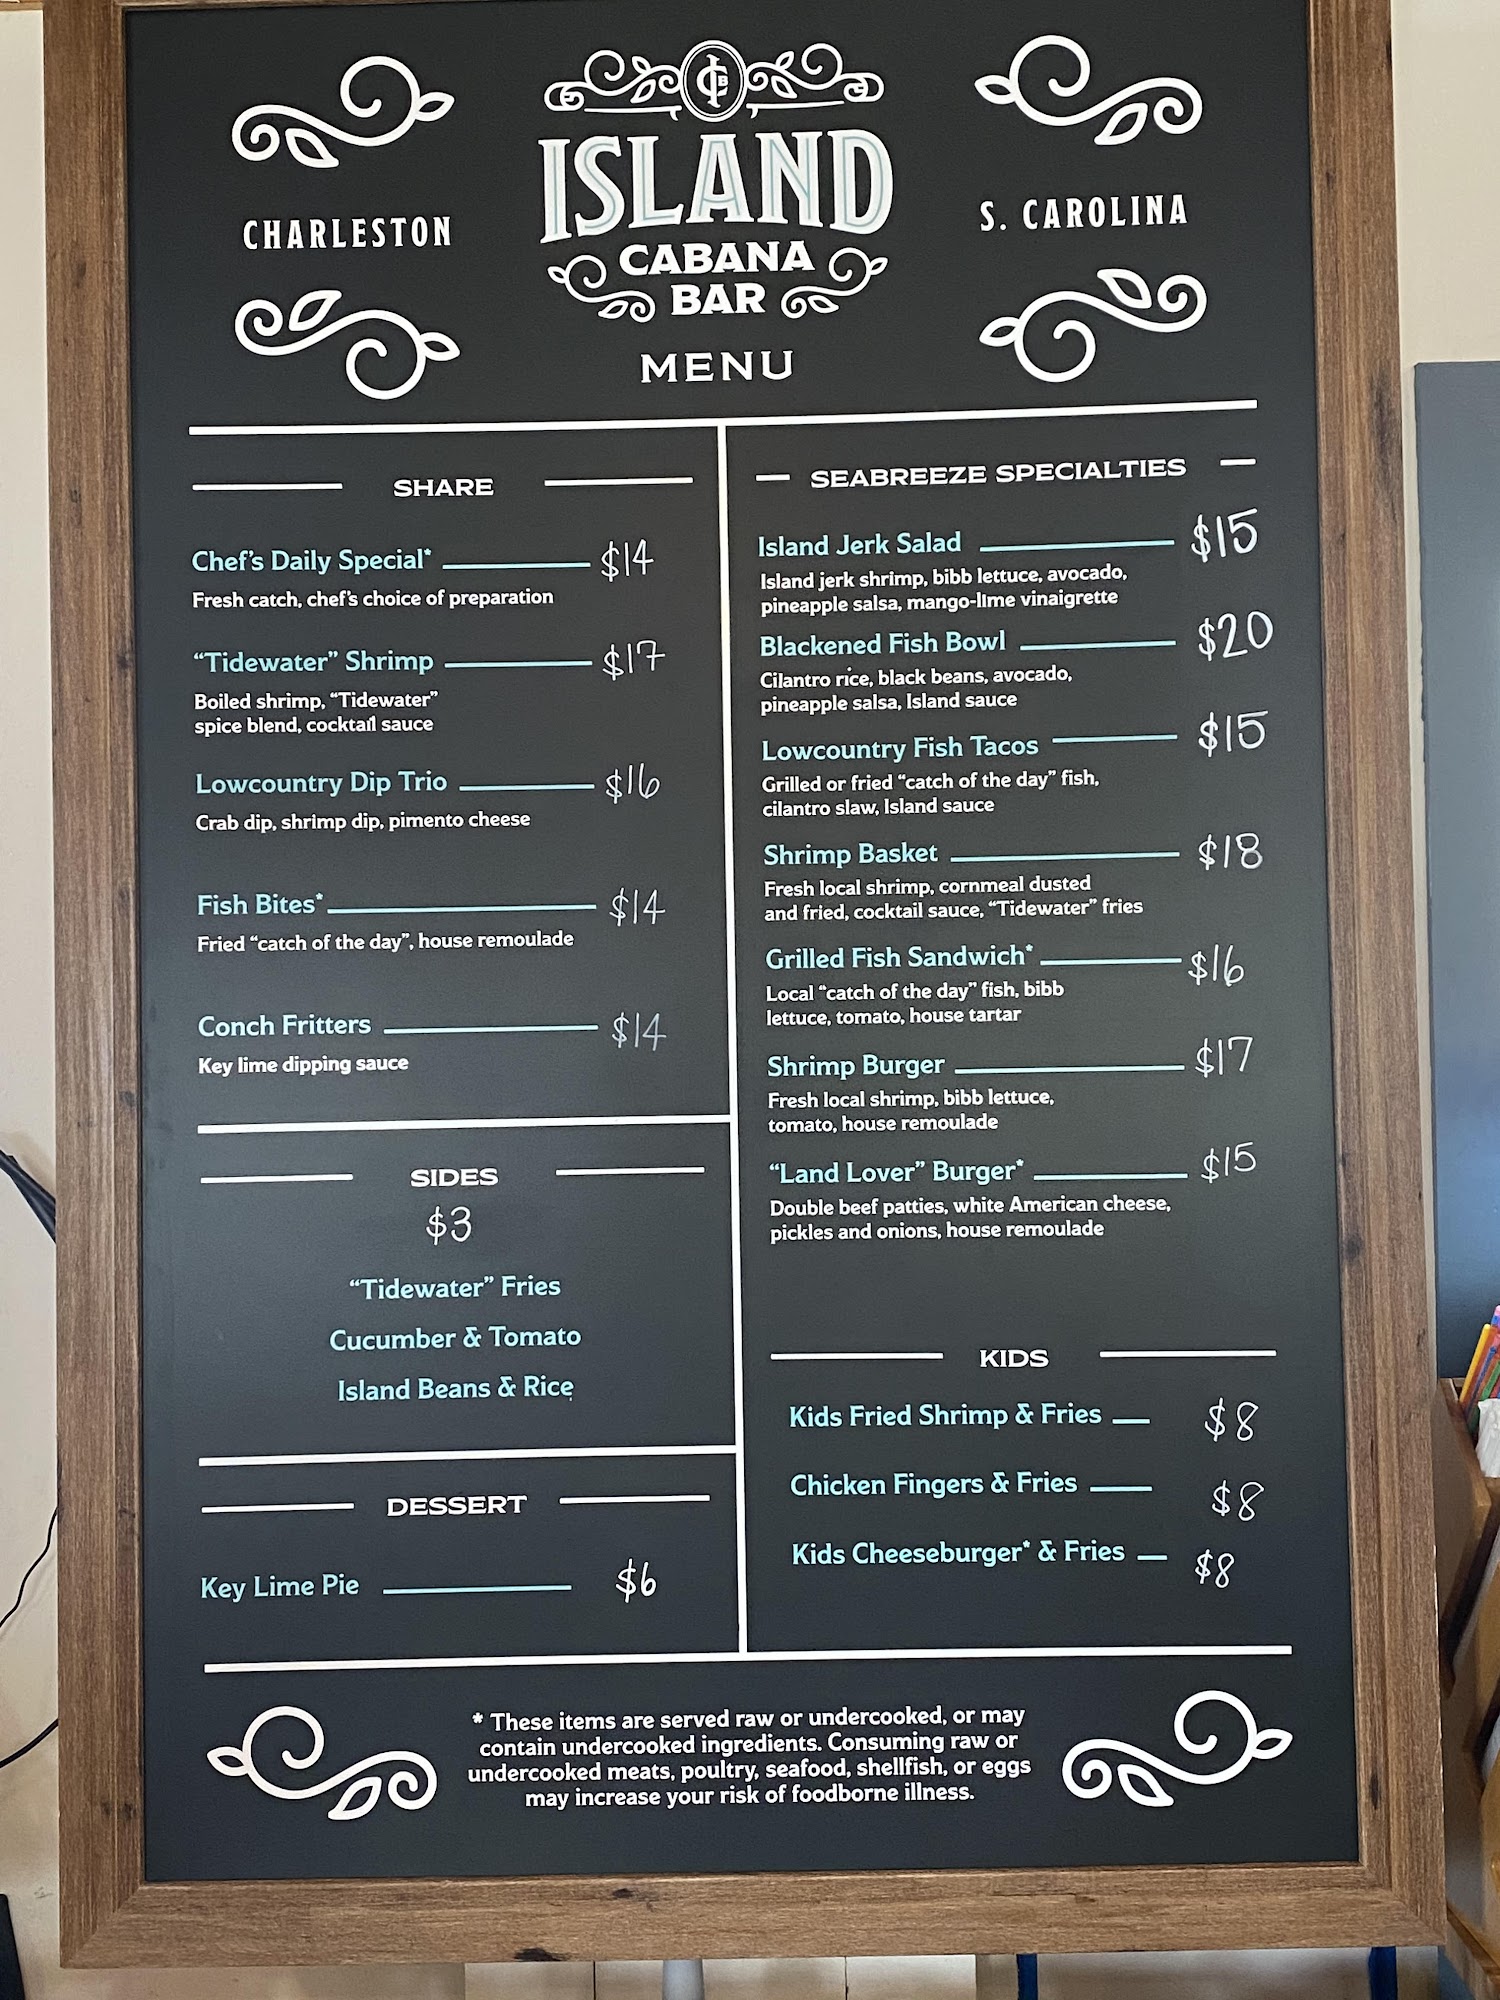 ICB
ISLAND
CABANA
BAR
CHARLESTON
S. CAROLINA
MENU
SHARE
Chef's Daily Special* $14
Fresh catch, chef's choice of preparation
“Tidewater” Shrimp $17
Boiled shrimp, “Tidewater”
spice blend, cocktail sauce
Lowcountry Dip Trio $16
Crab dip, shrimp dip, pimento cheese
Fish Bites* $14
Fried “catch of the day”, house remoulade
Conch Fritters $14
Key lime dipping sauce
SIDES
$3
“Tidewater” Fries
Cucumber & Tomato
Island Beans & Rice
DESSERT
Key Lime Pie $6
SEABREEZE SPECIALTIES
Island Jerk Salad $15
Island jerk shrimp, bibb lettuce, avocado,
pineapple salsa, mango-lime vinaigrette
Blackened Fish Bowl $20
Cilantro rice, black beans, avocado,
pineapple salsa, Island sauce
Lowcountry Fish Tacos $15
Grilled or fried “catch of the day” fish,
cilantro slaw, Island sauce
Shrimp Basket $18
Fresh local shrimp, cornmeal dusted
and fried, cocktail sauce, “Tidewater” fries
Grilled Fish Sandwich* $16
Local “catch of the day” fish, bibb
lettuce, tomato, house tartar
Shrimp Burger $17
Fresh local shrimp, bibb lettuce,
tomato, house remoulade
“Land Lover” Burger* $15
Double beef patties, white American cheese,
pickles and onions, house remoulade
KIDS
Kids Fried Shrimp & Fries $8
Chicken Fingers & Fries $8
Kids Cheeseburger* & Fries $8
* These items are served raw or undercooked, or may
contain undercooked ingredients. Consuming raw or
undercooked meats, poultry, seafood, shellfish, or eggs
may increase your risk of foodborne illness.